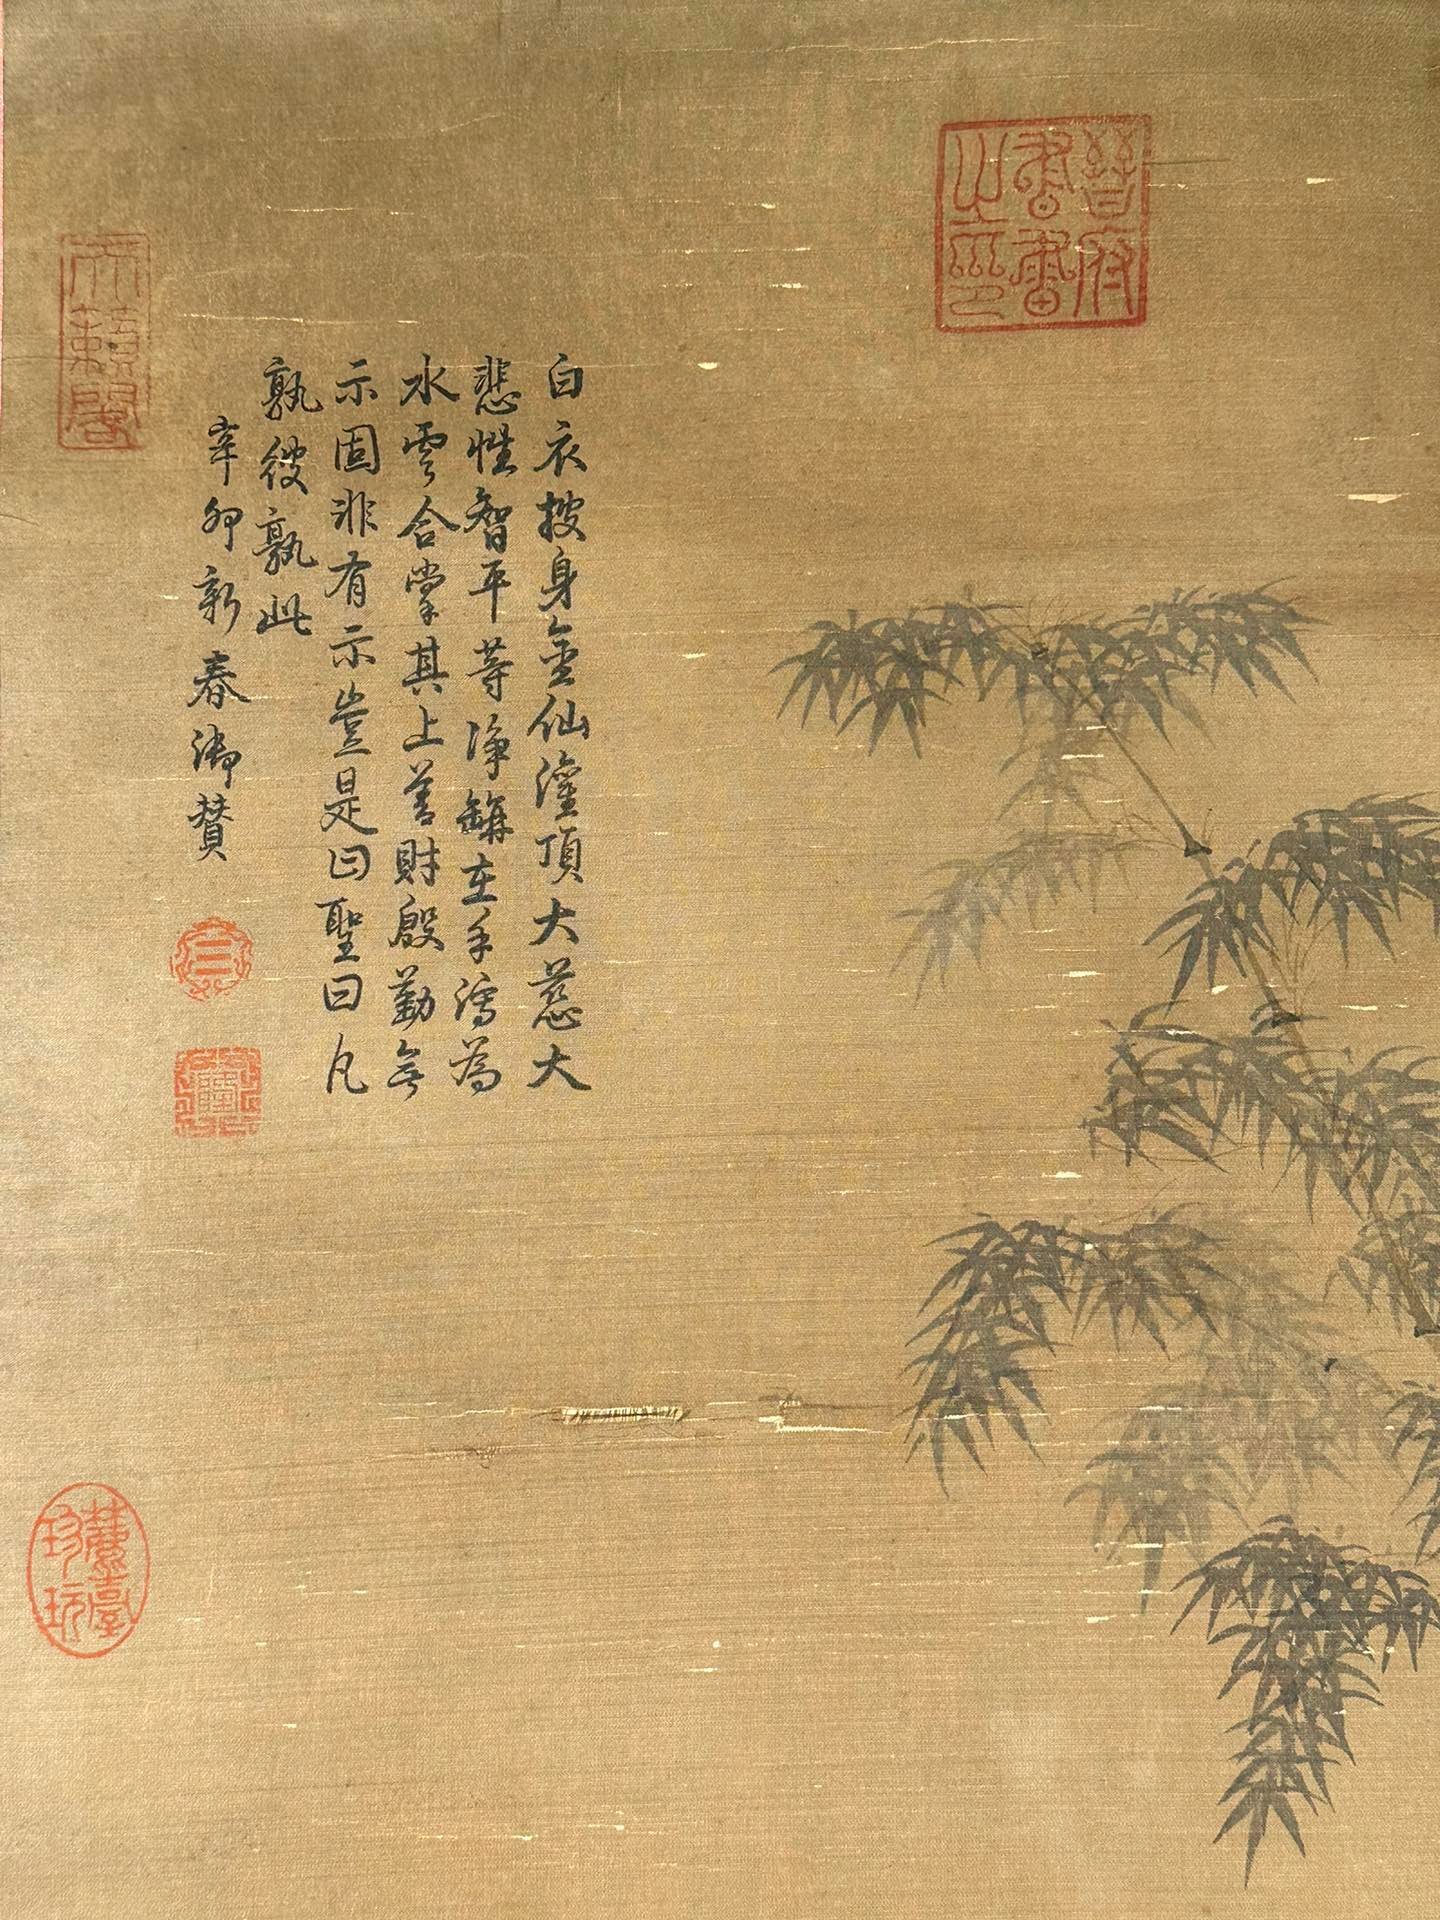 晉府
書畫
之印
白衣披身金仙灌頂大慈大
悲性智平等淨缾在手瀉為
水雲合掌其上善財殷勤無
示固非有示豈是曰聖曰凡
孰彼孰此
辛卯新春御贊
隆
天籟閣
臺
珍玩